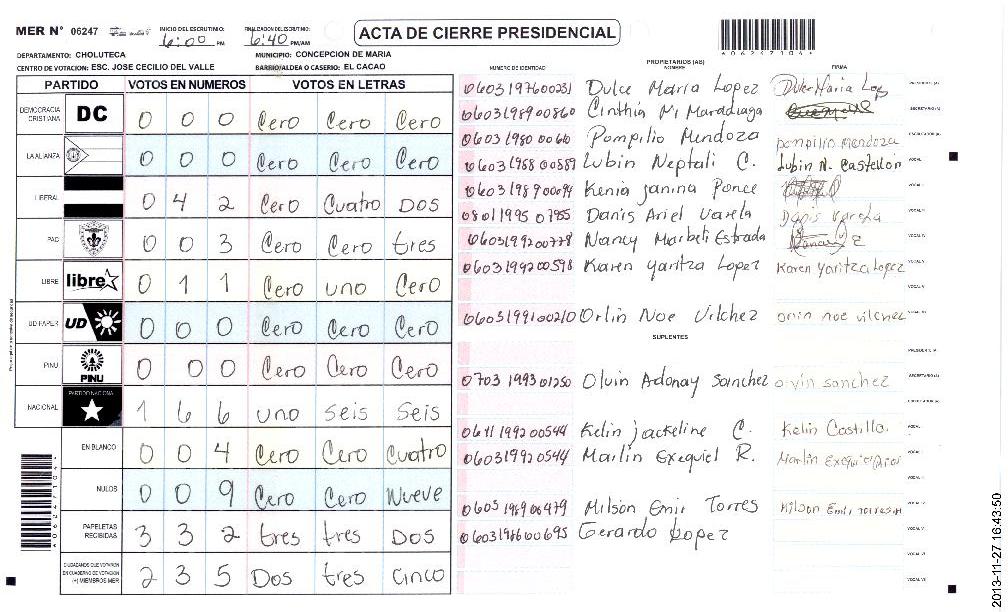 MER N° 06247 INICIO DEL ESCRUTINIO: 6:00 PM FINALIZACION DEL ESCRUTINIO: 6:40 PM/AM
ACTA DE CIERRE PRESIDENCIAL
DEPARTAMENTO: CHOLUTECA MUNICIPIO: CONCEPCION DE MARIA
CENTRO DE VOTACION: ESC. JOSE CECILIO DEL VALLE BARRIO/ALDEA O CASERIO: EL CACAO
PARTIDO VOTOS EN NUMEROS VOTOS EN LETRAS
DEMOCRACIA CRISTIANA DC 0 0 0 Cero Cero Cero
LA ALIANZA 0 0 0 Cero Cero Cero
LIBERAL 0 4 2 Cero Cuatro Dos
PAC 0 0 3 Cero Cero tres
LIBRE libre 0 1 1 Cero uno Cero
UD-FAPER UD 0 0 0 Cero Cero Cero
PINU PINU 0 0 0 Cero Cero Cero
NACIONAL PARTIDO NACIONAL 1 6 6 uno seis Seis
EN BLANCO 0 0 4 Cero Cero Cuatro
NULOS 0 0 9 Cero Cero Nueve
PAPELETAS RECIBIDAS 3 3 2 tres tres Dos
CIUDADANOS QUE VOTARON EN CUADERNO DE VOTACION (+) MIEMBROS MER 2 3 5 Dos tres Cinco
PROPIETARIOS (AS)
NUMERO DE IDENTIDAD NOMBRE FIRMA
0603197600231 Dulce Maria Lopez Dulce Maria Lop
0603198900860 Cinthia M. Maradiaga
0603 1980 00610 Pompilio Mendoza pompilio mendoza
0603 1988 00589 Lubin Neptali C. Lubin N. Castellon
0603198900094 Kenia Janina Ponce
0801 1995 07955 Danis Ariel Varela Danis Varela
0603199200778 Nancy Marbeli Estrada
0603199200598 Karen Yaritza Lopez Karen Yaritza Lopez
0603199100210 Orlin Noe Vilchez orlin noe vilchez
SUPLENTES
0703 1993 01250 Olvin Adonay Sanchez olvin sanchez
0611 199200544 Kelin Jackeline C. Kelin Castillo
0603199200544 Marlin Exequiel R. Marlin
0605 1989 00479 Milson Emir Torres Milson Emir Torres
0603198600695 Gerardo Lopez
2013-11-27 16:43:50